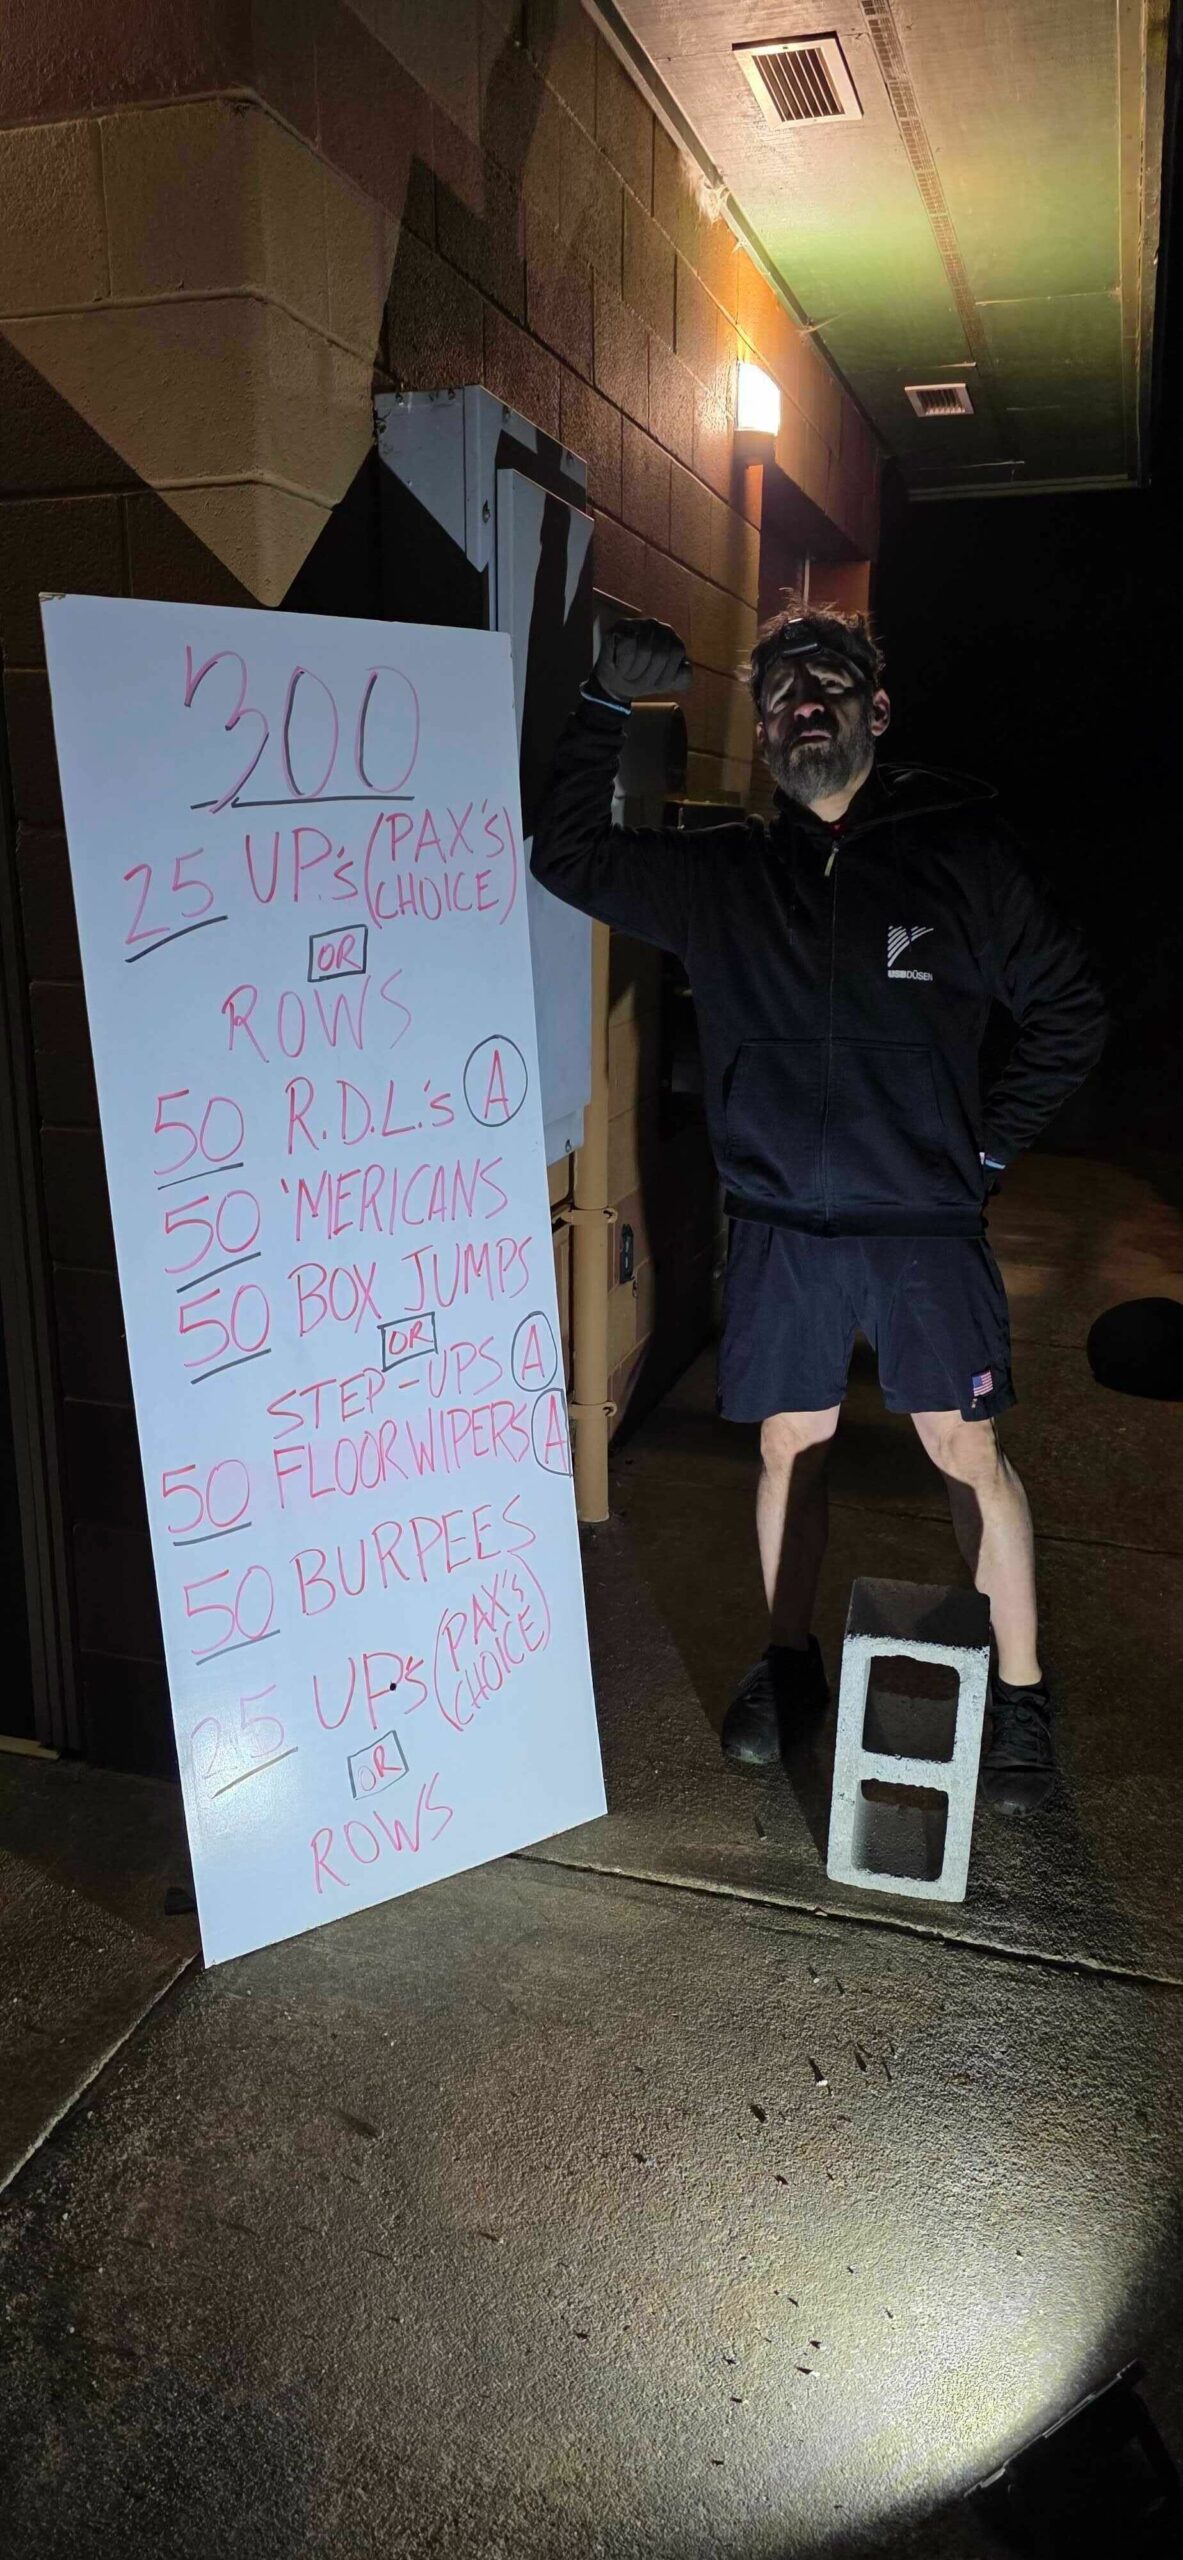 300
25 UP.'s (PAX'S
CHOICE)
OR
ROWS
50 R.D.L.'s A
50 'MERICANS
50 BOX JUMPS
OR
STEP-UPS A
50 FLOORWIPERS A
50 BURPEES
25 UP's (PAX's
CHOICE)
OR
ROWS
USBDÜSEN